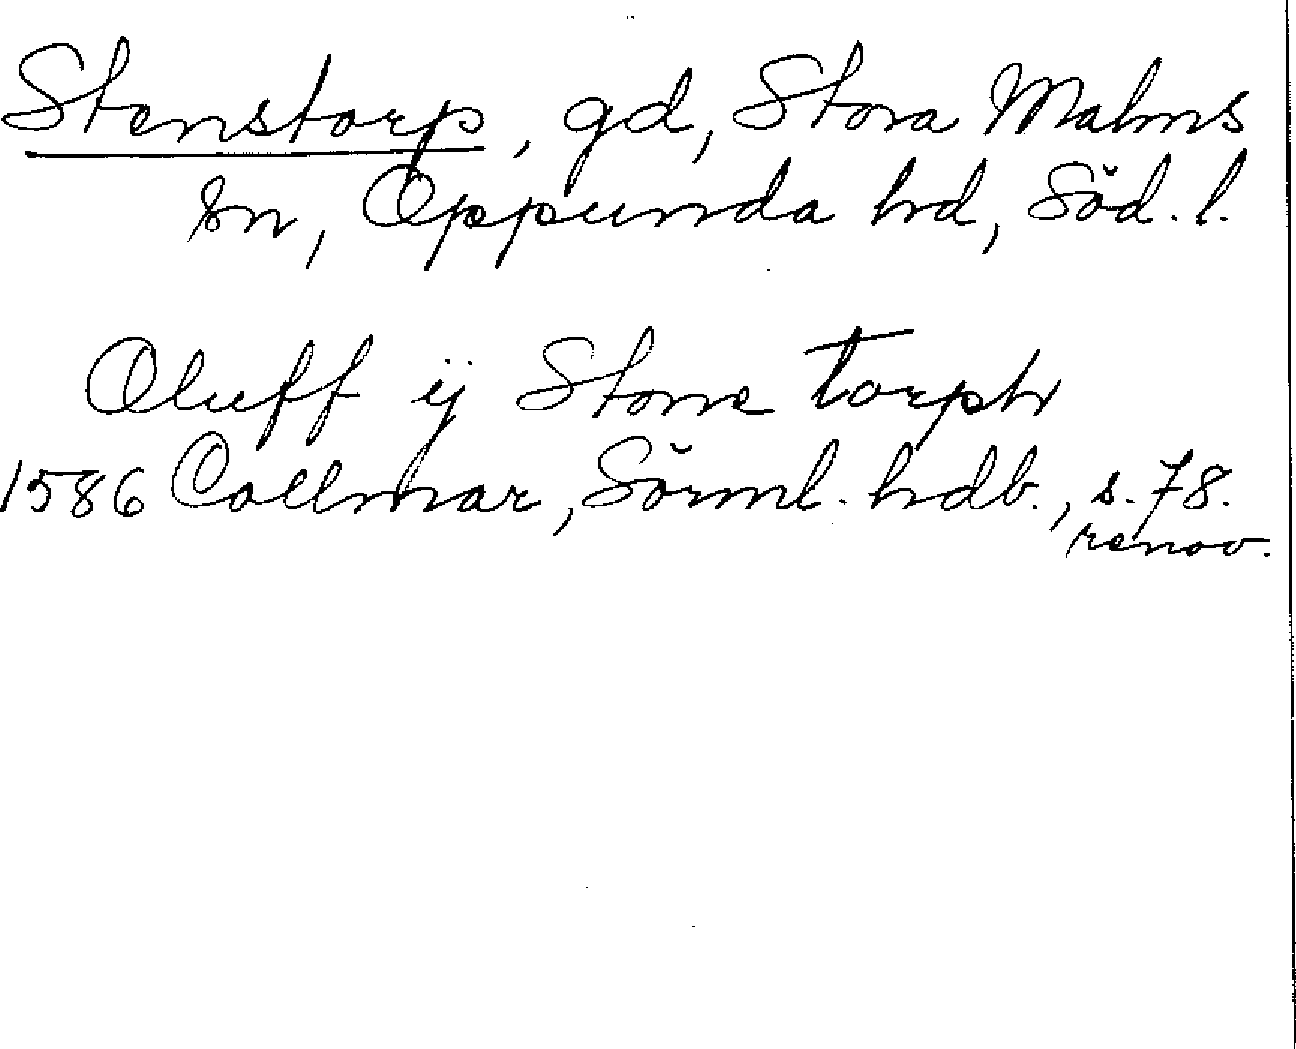 Stenstorp, gd, Stora Malms
sn, Oppunda hd, Söd. l.
Oluff ij Stone torph
1586 Collmar, Sörml. hdb., s. 78.
renov.